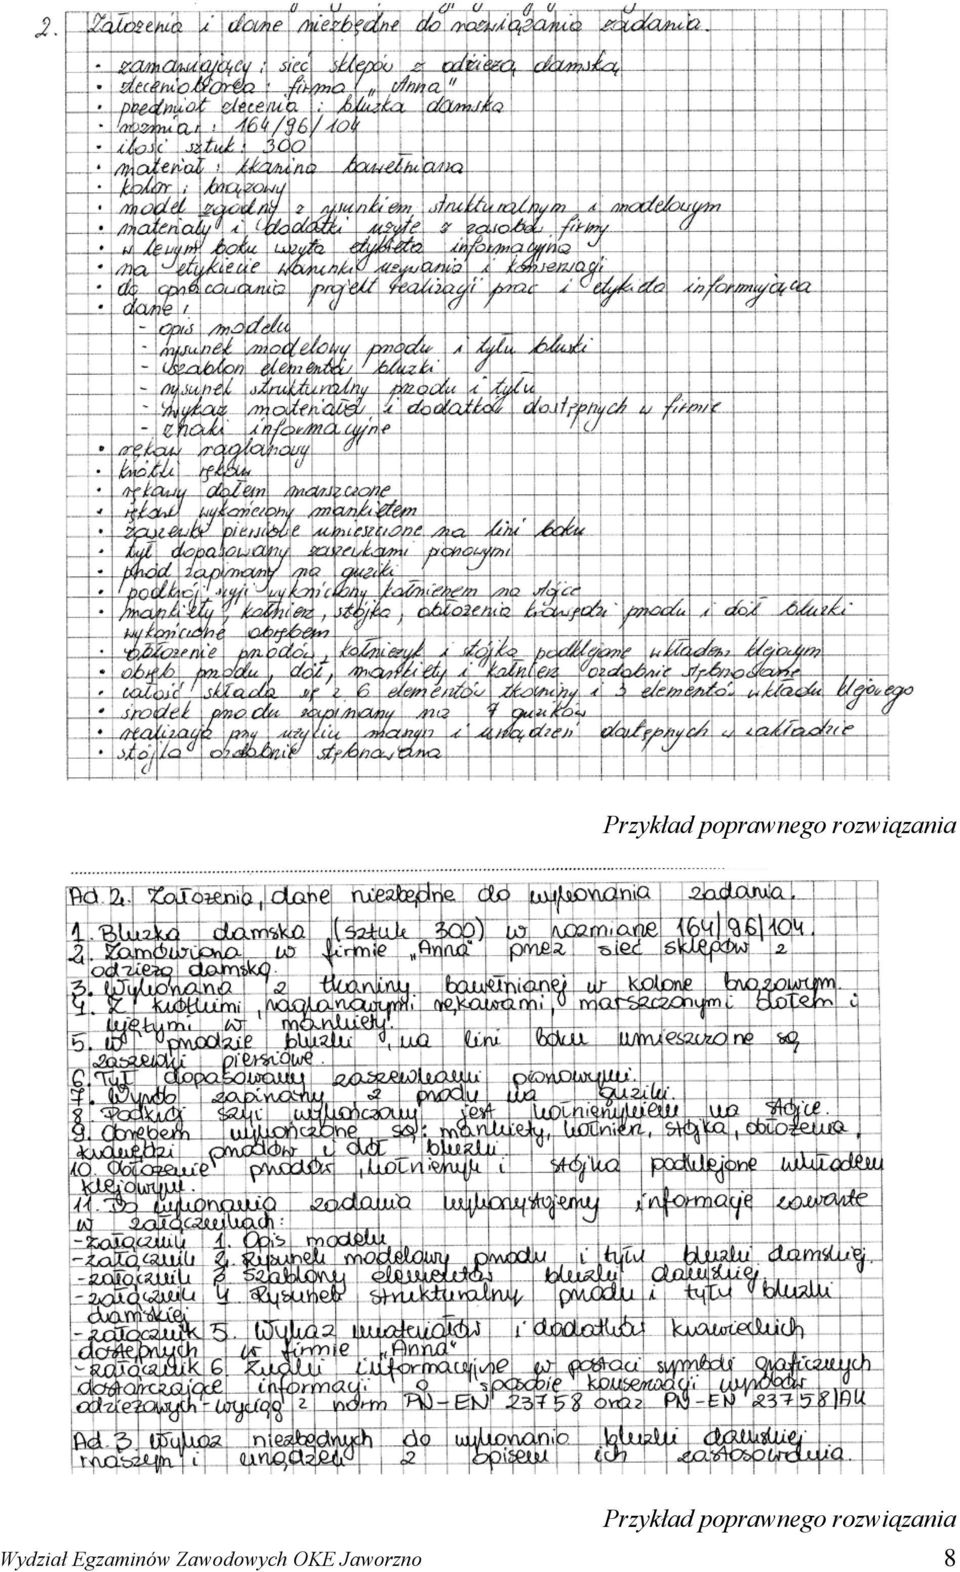 2. Założenia i dane niezbędne do rozwiązania zadania.
• zamawiający : sieć sklepów z odzieżą damską
• zleceniobiorca : firma „Anna"
• przedmiot zlecenia : bluzka damska
• rozmiar : 164/96/104
• ilość sztuk : 300
• materiał : tkanina bawełniana
• kolor : brązowy
• model zgodny z rysunkiem strukturalnym i modelowym
• materiały i dodatki użyte z zasobów firmy
• w lewym boku wszyta etykieta informacyjna
• na etykiecie warunki używania i konserwacji
• do opracowania projekt realizacji prac i etykieta informująca
• dane :
- opis modelu
- rysunek modelowy przodu i tyłu bluzki
- szablon elementów bluzki
- rysunek strukturalny przodu i tyłu
- wykaz materiałów i dodatków dostępnych w firmie
- znaki informacyjne
• rękaw raglanowy
• krótki rękaw
• rękawy dołem marszczone
• rękaw wykończony mankietem
• zaszewki piersiowe umieszczone na lini boku
• tył dopasowany zaszewkami pionowymi
• przód zapinany na guziki
• podkrój szyji wykończony kołnierzem na stójce
• mankiety, kołnierz, stójka, obłożenia krawędzi przodu i dół bluzki
wykończone obrębem
• obłożenie przodów, kołnierzyk i stójka podklejane wkładem klejowym
• obręb przodu, dół, mankiety i kołnierz ozdobnie stębnowane
• całość składa się z 6 elementów tkaniny i 3 elementów wkładu klejowego
• środek przodu zapinany na 7 guzików
• realizacja przy użyciu maszyn i urządzeń dostępnych w zakładzie
• stójka ozdobnie stębnowana
Przykład poprawnego rozwiązania
Ad. 2. Założenia, dane niezbędne do wykonania zadania.
1. Bluzka damska (sztuk 300) w rozmiarze 164/96/104.
2. Zamówiona w firmie „Anna" przez sieć sklepów z
odzieżą damską.
3. Wykonana z tkaniny bawełnianej w kolorze brązowym.
4. Z krótkimi, raglanowymi rękawami, marszczonymi dołem i
ujętymi w mankiety.
5. W przodzie bluzki, na lini boku umieszczone są
zaszewki piersiowe.
6. Tył dopasowany zaszewkami pionowymi.
7. Wyrób zapinany z przodu na guziki.
8. Podkrój szyi wykończony jest kołnierzykiem na stójce.
9. Obrębem wykończone są: mankiety, kołnierz, stójka, obłożenia,
krawędzi przodów i dół bluzki.
10. Obłożenie przodów, kołnierzyk i stójka podklejone wkładem
klejowym.
11. Do wykonania zadania wykorzystujemy informacje zawarte
w załącznikach:
- załącznik 1. Opis modelu
- załącznik 2. Rysunek modelowy przodu i tyłu bluzki damskiej.
- załącznik 3 Szablony elementów bluzki damskiej
- załącznik 4 Rysunek strukturalny przodu i tyłu bluzki
damskiej
- załącznik 5. Wykaz materiałów i dodatków krawieckich
dostępnych w firmie „Anna"
- załącznik 6. Znaki informacyjne w postaci symboli graficznych
dostarczające informacji o sposobie konserwacji wyrobów
odzieżowych - wyciąg z norm PN-EN 23758 oraz PN-EN 23758/AK
Ad. 3. Wykaz niezbędnych do wykonania bluzki damskiej
maszyn i urządzeń z opisem ich zastosowania.
Przykład poprawnego rozwiązania
Wydział Egzaminów Zawodowych OKE Jaworzno 8